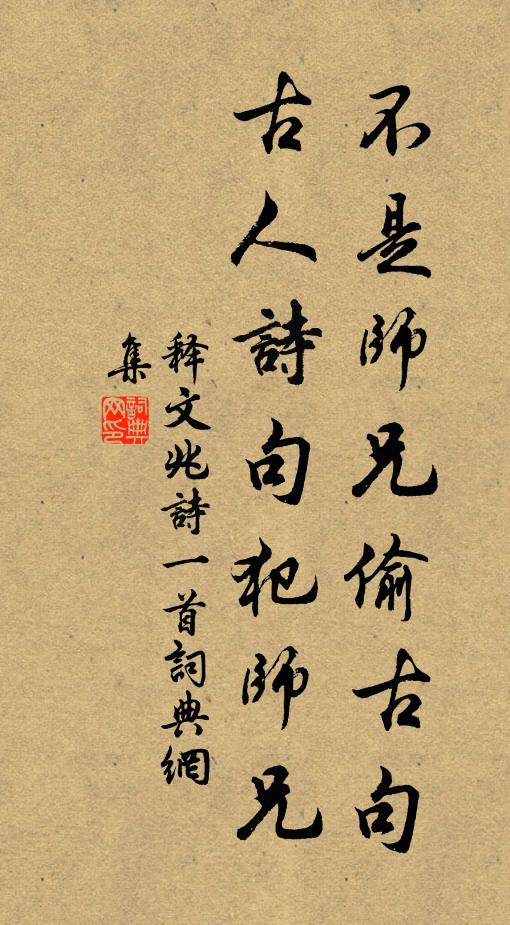 不是師兄偷古句
古人詩句犯師兄
释文兆詩一首詞典網
集
詞典
网印